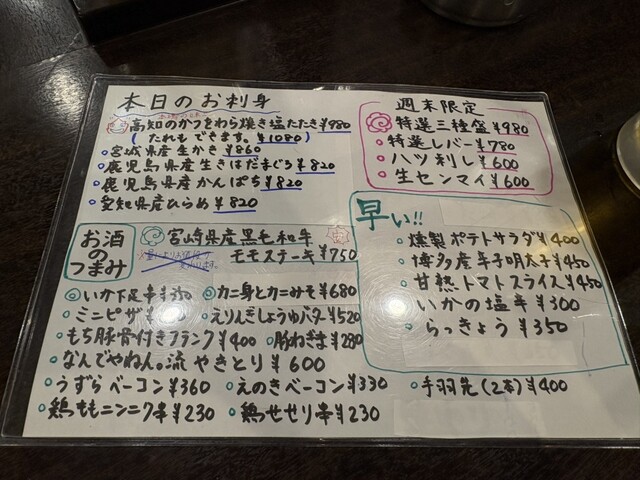 本日のお刺身
高知のかつをわら焼き塩たたき¥980
(たれもできます。¥1080)
・宮城県産生かき¥860
・鹿児島県産生きはだまぐろ¥820
・鹿児島県産かんぱち¥820
・愛知県産ひらめ¥820
週末限定
特選三種盛¥980
・特選レバー¥780
・ハツ刺し¥600
・生センマイ¥600
早い!!
・燻製ポテトサラダ¥400
・博多産辛子明太子¥450
・甘熟トマトスライス¥450
・いかの塩辛¥300
・らっきょう¥350
お酒のつまみ
宮崎県産黒毛和牛
モモステーキ¥750
いか下足串¥350
カニ身とカニみそ¥680
・ミニピザ
・えりんぎしょうゆバター¥520
・もち豚骨付きフランク¥400
・豚ねぎま¥280
・なんでやねん。流 やきとり¥600
・うずらベーコン¥360
・えのきベーコン¥330
・手羽先(2本)¥400
・鶏ももニンニク串¥230
・鶏せせり串¥230